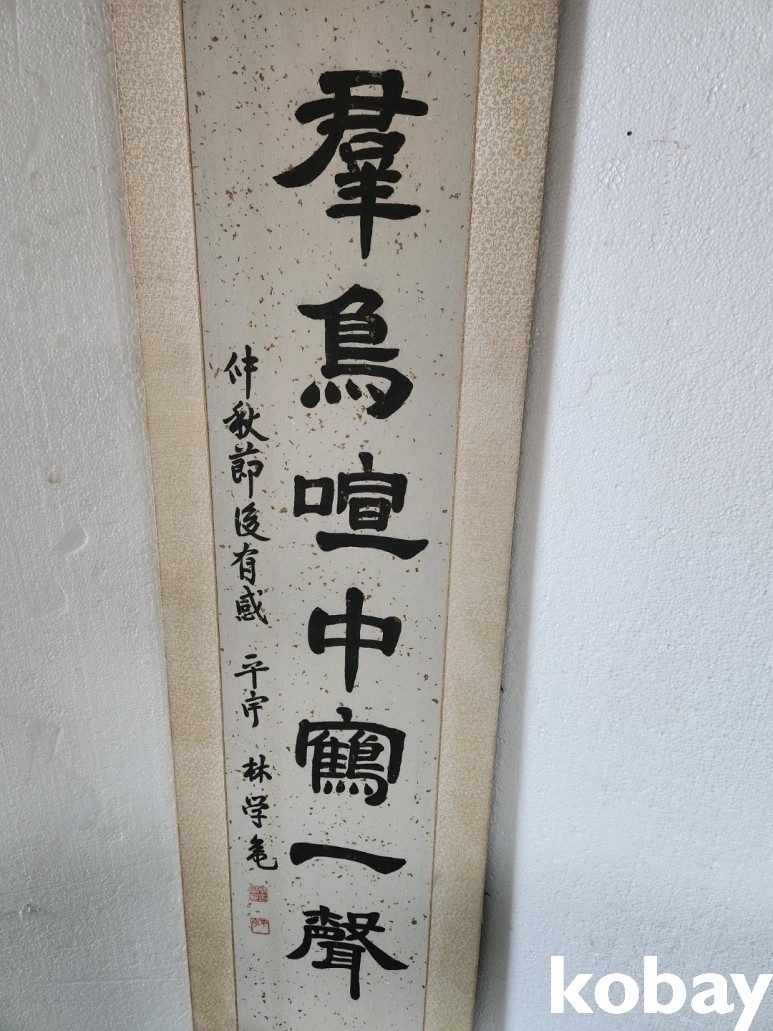 羣烏喧中鶴一聲
仲秋節後有感 平宇 林学
kobay